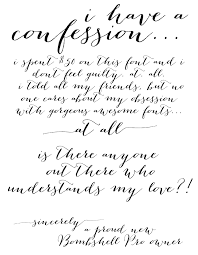 i have a
confession...
i spent $50 on this font and i
dont feel guilty. at. all.
i told all my friends, but no
one cares about my obsession
with gorgeous awesome fonts...
at all
is there anyone
out there who
understands my love?!
sincerely
a proud new
Bombshell Pro owner